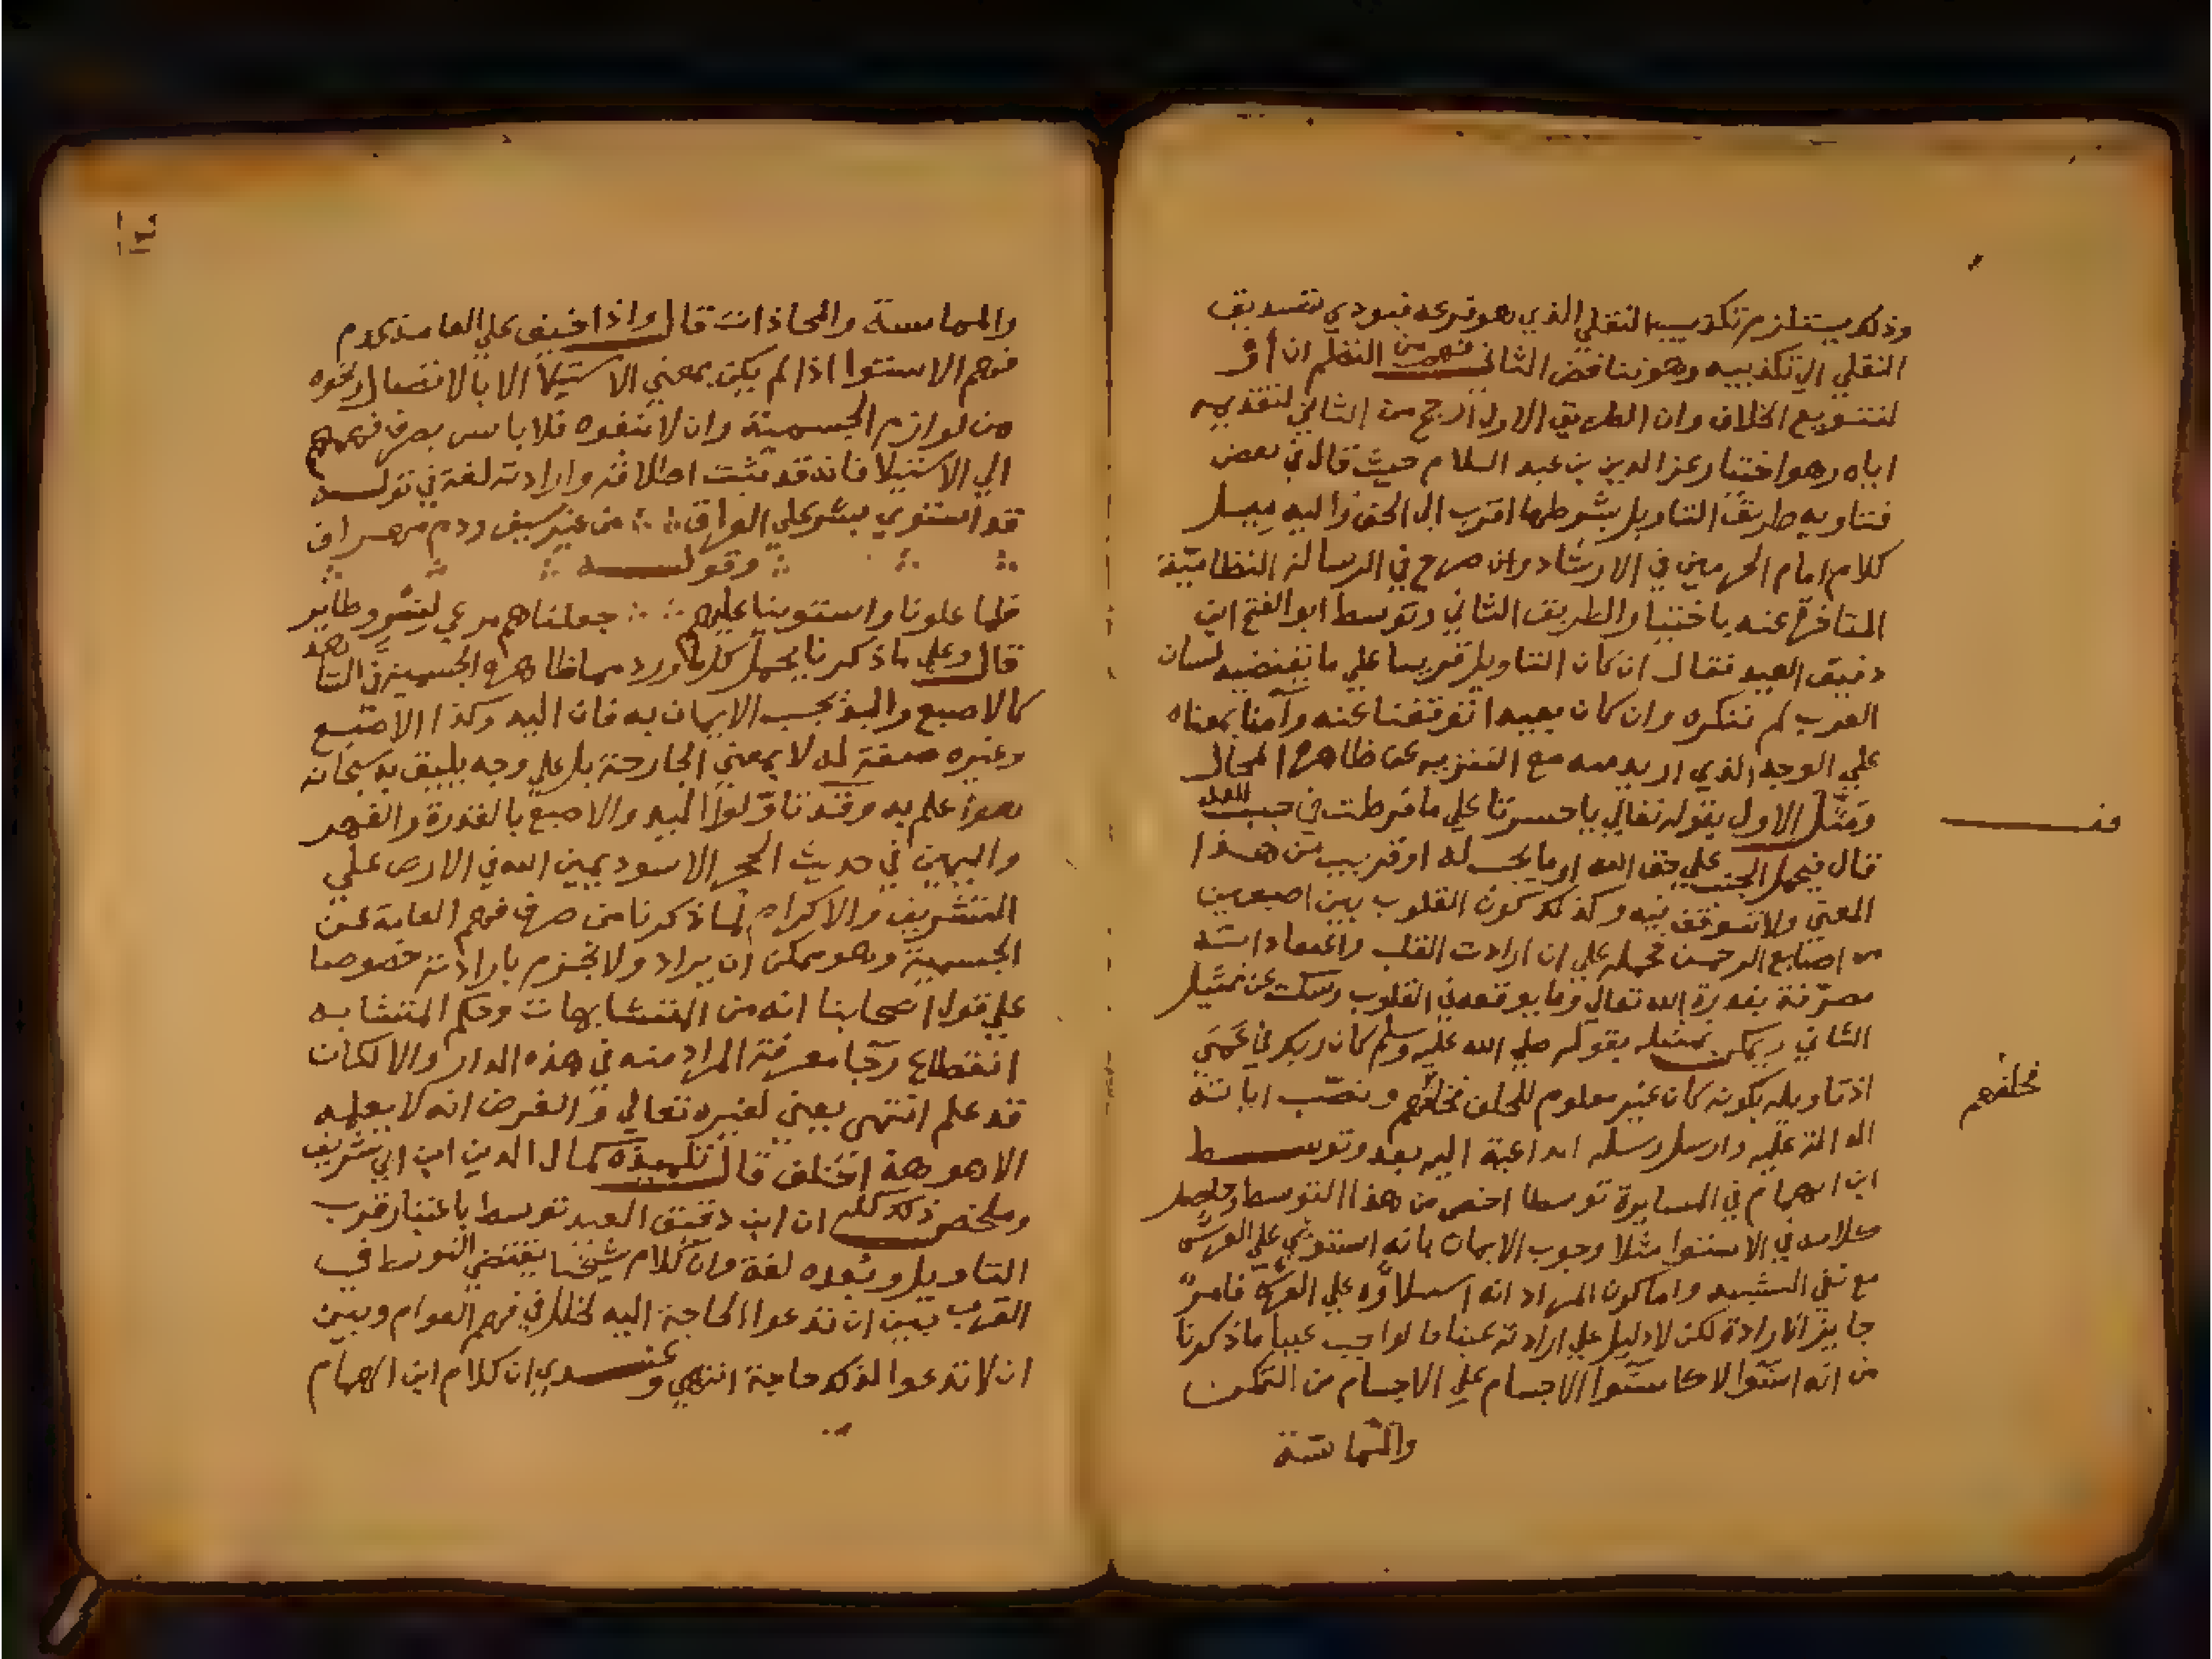 وذلك يستلزم تكذيب النقلي الذي هو فرعه فيودي تصديق
النقلي الي تكذيبه وهو تناقض الثاني فهم من النظم ان او
لتنويع الخلاف وان الطريق الاول ارجح من الثاني لتقديمه
اياه وهو اختيار عز الدين بن عبد السلام حيث قال في بعض
فتاويه طريق التاويل بشرطها اقرب الي الحق واليه يميل
كلام امام الحرمين في الارشاد وان صرح في الرسالة النظامية
المتاخرة عنه باختيار الطريق الثاني وتوسط ابو الفتح ابن
دقيق العيد فقال ان كان التاويل قريبا علي ما يقتضيه لسان
العرب لم ننكره وان كان بعيدا توقفنا عنه وآمنا بمعناه
علي الوجه الذي اريد به مع التنزيه عن ظاهره المحال
ومثل الاول بقوله تعالي يا حسرتا علي ما فرطت في جنب الله
قال فيحمل الجنب علي حق الله او ما يجب له او قريب من هذا
المعني ولا نتوقف فيه وكذلك كون القلوب بين اصبعين
من اصابع الرحمن نحمله علي ان ارادت القلب واعتقاداته
مصرفة بقدرة الله تعالي وما يوقعه في القلوب وسكت عن تمثيل
الثاني ويمكن تمثيله بقوله صلي الله عليه وسلم كان ربك في عمي
اذ تاويله بكونه كان غير معلوم للخلق فخلقهم ونصب اياته
الدالة عليه وارسل رسله الداعية اليه بعد وتوسط
ابن الهمام في المسايرة توسطا اخص من هذا التوسط وحاصل
كلامه في الاستوا مثلا وجوب الايمان بانه استوي علي العرش
مع نفي التشبيه واما كون المراد انه استيلاؤه علي العرش فامر
جايز الارادة لكن لا دليل علي ارادته عينا فالواجب عينا ما ذكرنا
من انه استوا لا كاستوا الاجسام علي الاجسام من التمكن
والمماسة
فخلقهم
والمماسة والمحاذات قال واذا خيف علي العامة عدم
فهم الاستوا اذا لم يكن بمعني الاستيلا الا بالاتصال ونحوه
من لوازم الجسمية وان لا ينفوه فلا باس بصرف فهمهم
الي الاستيلا فانه قد ثبت اطلاقه وارادته لغة في قوله
قد استوي بشر علي العراق من غير سيف ودم مهراق
وقوله
فلما علونا واستوينا عليهم جعلناهم مرعي لنسر وطاير
قال وعلي ما ذكرنا يحمل كلما ورد مما ظاهره الجسمية في الشاهد
كالاصبع واليد يجب الايمان به فان اليد وكذا الاصبع
وغيره صفة له لا بمعني الجارحة بل علي وجه يليق به سبحانه
هو اعلم به وقد تاولوا اليد والاصبع بالقدرة والقهر
واليمين في حديث الحجر الاسود يمين الله في الارض علي
التشريف والاكرام لما ذكرنا من صرف فهم العامة عن
الجسمية وهو ممكن ان يراد ولا يجزم بارادته خصوصا
علي قول اصحابنا انه من المتشابهات وحكم المتشابه
انقطاع رجا معرفة المراد منه في هذه الدار والا لكان
قد علم انتهي يعني لغيره تعالي والغرض انه لا يعلمه
الا هو هذا خلف قال تلميذه كمال الدين ابن ابي شريف
وملخص ذلك كله ان ابن دقيق العيد توسط باعتبار قرب
التاويل وبعده لغة وان كلام شيخنا يقتضي التوسط في
القرب بين ان تدعوا الحاجة اليه لخلل في فهم العوام وبين
ان لا تدعوا لذلك حاجة انتهي وعندي ان كلام ابن الهمام